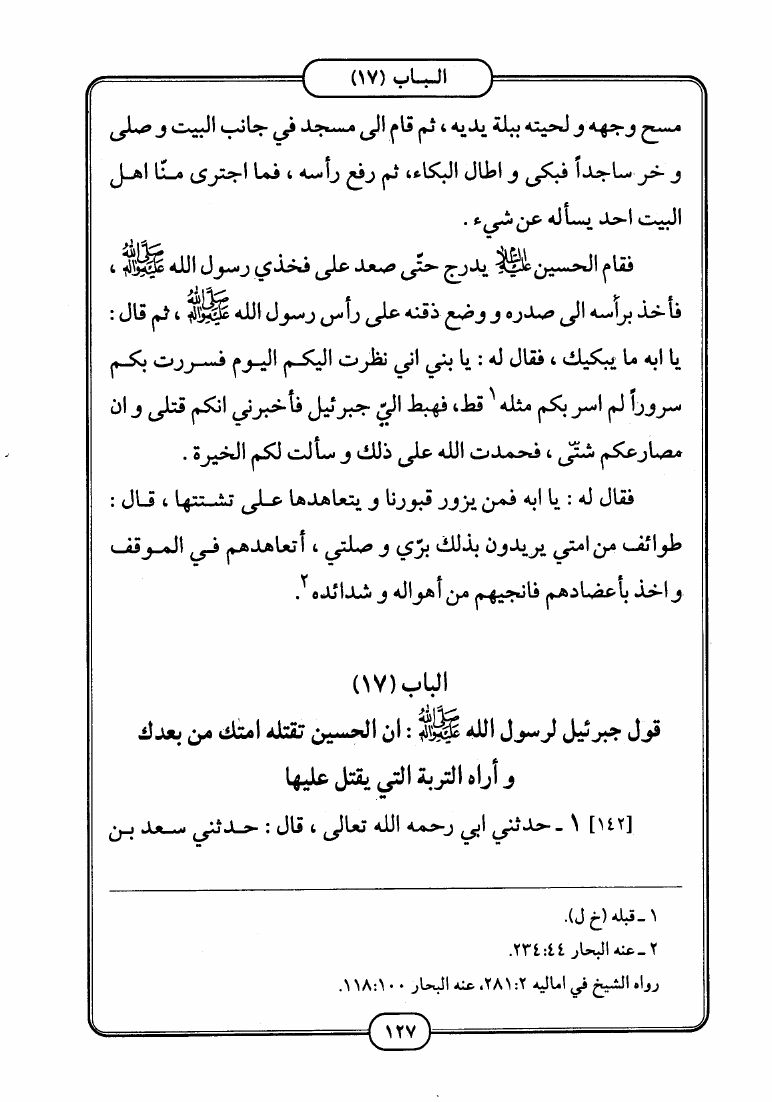 الباب (١٧)
مسح وجهه و لحيته ببلة يديه ، ثم قام الى مسجد في جانب البيت و صلى
و خر ساجداً فبكى و اطال البكاء، ثم رفع رأسه ، فما اجترى منّا اهل
البيت احد يسأله عن شيء .
فقام الحسين عليه السلام يدرج حتّى صعد على فخذي رسول الله صلى الله عليه وآله ،
فأخذ برأسه الى صدره و وضع ذقنه على رأس رسول الله صلى الله عليه وآله ، ثم قال :
يا ابه ما يبكيك ، فقال له : يا بني اني نظرت اليكم اليوم فسررت بكم
سروراً لم اسر بكم مثله ١ قط، فهبط اليّ جبرئيل فأخبرني انكم قتلى و ان
مصارعكم شتّى ، فحمدت الله على ذلك و سألت لكم الخيرة .
فقال له : يا ابه فمن يزور قبورنا و يتعاهدها على تشتتها ، قال :
طوائف من امتي يريدون بذلك برّي و صلتي ، أتعاهدهم في الموقف
و اخذ بأعضادهم فانجيهم من أهواله و شدائده ٢.
الباب (١٧)
قول جبرئيل لرسول الله صلى الله عليه وآله : ان الحسين تقتله امتك من بعدك
و أراه التربة التي يقتل عليها
[١٤٢] ١ ـ حدثني ابي رحمه الله تعالى ، قال : حدثني سعد بن
١ ـ قبله (خ ل).
٢ ـ عنه البحار ٢٣٤:٤٤.
رواه الشيخ في اماليه ٢٨١:٢، عنه البحار ١١٨:١٠٠.
١٢٧